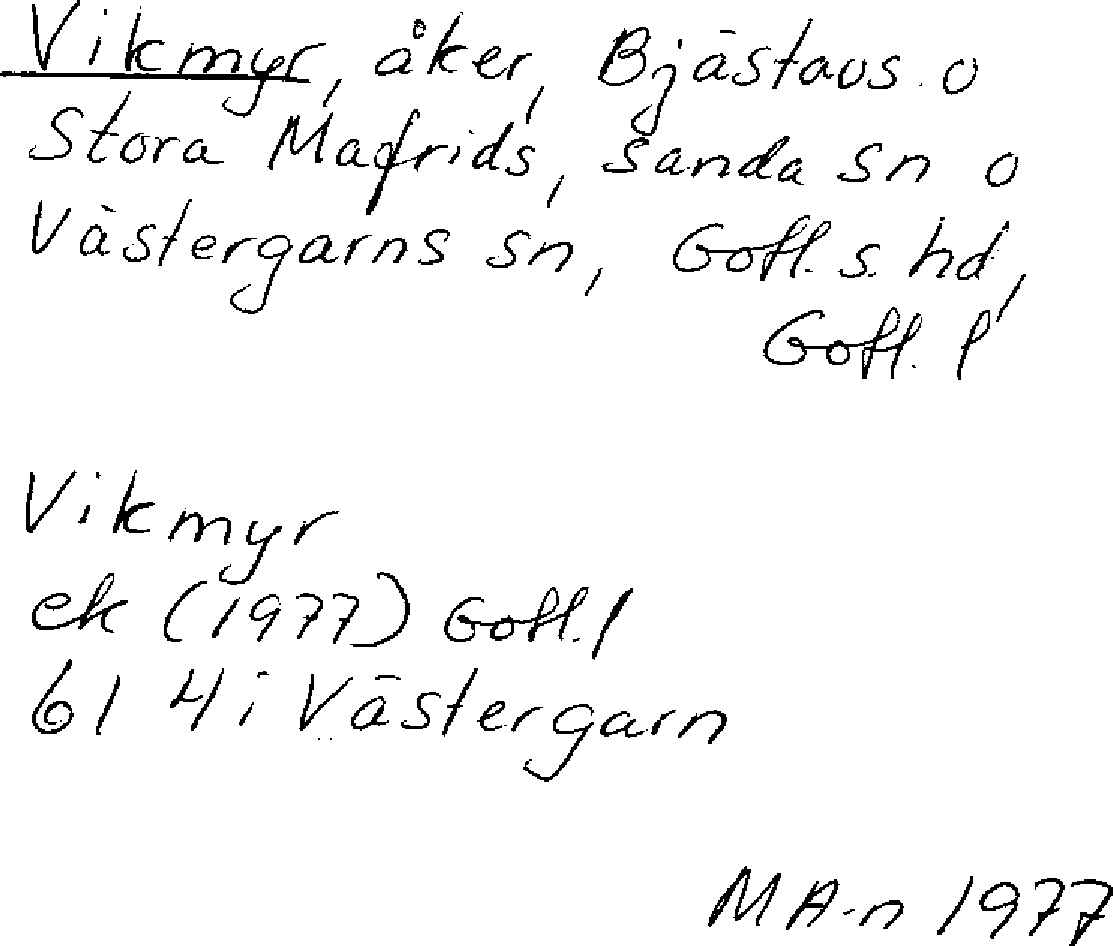 Vikmyr, åker, Bjästavs o
Stora Mafrids, Sanda sn o
Västergarns sn, Gotl. s. hd,
Gotl. l
Vikmyr
ek (1977) Gotl. l
61 4 i Västergarn
MA-n 1977